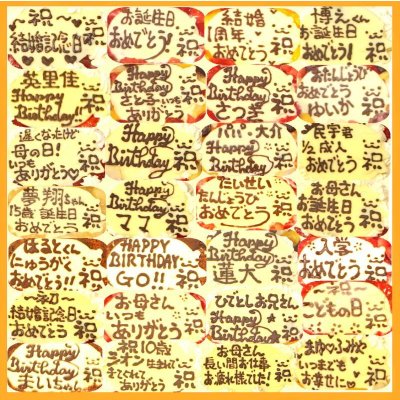 ～祝～
結婚記念日
お誕生日
おめでとう!
祝
結婚
1周年
おめでとう
祝
博えくん
お誕生日
おめでとう!
祝
英里佳
おめでとう!!
祝
Happy
Birthday
さと子
いつも
ありがとう
祝
Happy
Birthday
祝
おたんじょうび
おめでとう
ゆいか
祝
遅くなったけど
母の日!
いつも
ありがとう♡
祝
Happy
Birthday
祝
パパ・大介
Happy
Birthday
祝
民宇君
1/2成人
おめでとう
祝
夢翔ちゃん
15歳誕生日
おめでとう
祝
Happy
Birthday
ママ
祝
たいせい
たんじょうび
おめでとう
祝
お母さん
お誕生日
おめでとう
祝
はるとくん
にゅうがく
おめでとう!!
祝
HAPPY
BIRTHDAY
GO!!
祝
Happy
Birthday
蓮大
祝
入学
おめでとう!!
祝
結婚記念日
おめでとう
祝
お母さん
いつも
ありがとう
祝
ひでとしお兄さん
Happy
Birthday
祝
～祝～
こどもの日
祝
Happy
Birthday
まいちゃん
祝
祝10歳
ライオン
生まれて
きてくれて
ありがとう
祝
お母さん
長い間お仕事
お疲れ様でした!
祝
まゆ♡ふみと
いつまでも
お幸せに♡
祝